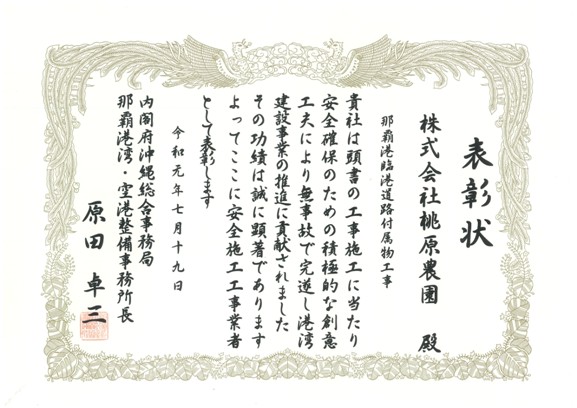 表彰状
株式会社桃原農園 殿
那覇港臨港道路付属物工事
貴社は頭書の工事施工に当たり
安全確保のための積極的な創意
工夫により無事故で完遂し港湾
建設事業の推進に貢献されました
その功績は誠に顕著であります
よってここに安全施工工事業者
として表彰します
令和元年七月十九日
内閣府沖縄総合事務局
那覇港湾・空港整備事務所長
原田卓三